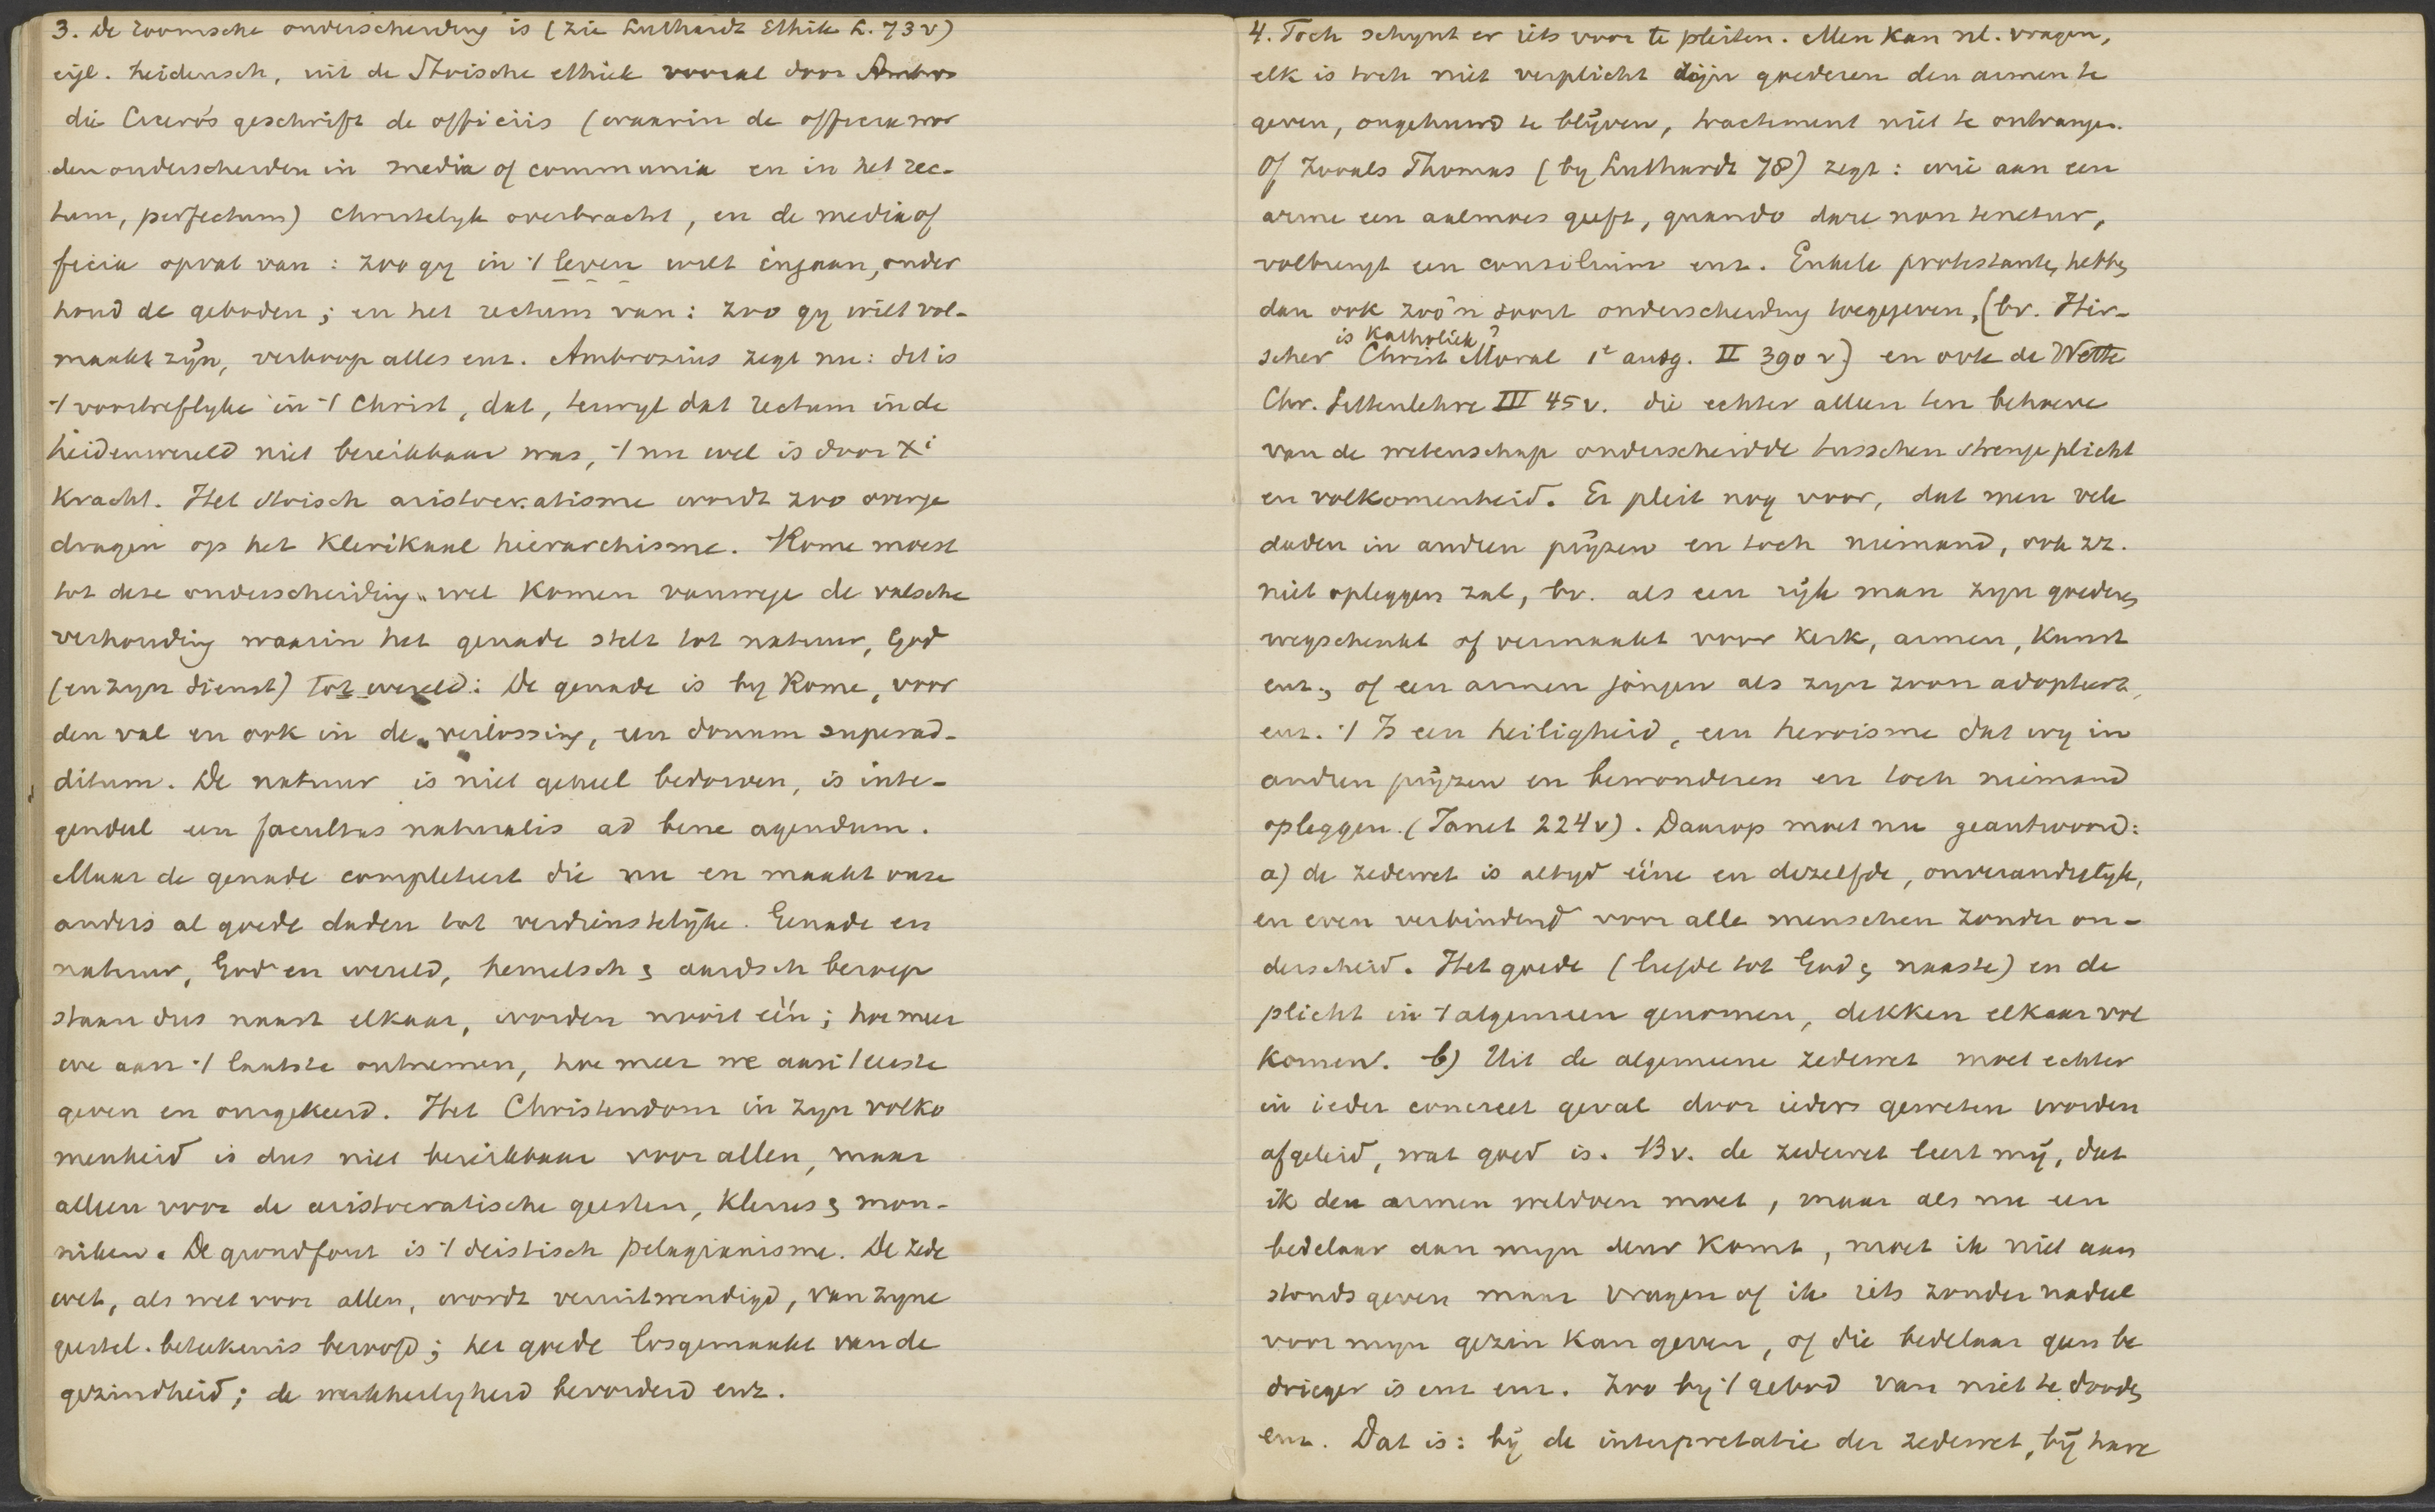 3. De roomsche onderscheiding is (zie Luthardt Ethik L. 73 v)
eigl. heidensch, uit de Stoische ethiek vooral door Ambros
die Cicero's geschrift de officiis (waarin de officia wor
den onderscheiden in media of communia en in het rec-
tum, perfectum) christelyk overbracht, en de media of
ficia opvat van: zoo gy in 't leven wilt ingaan, onder
houd de geboden; en het rectum van: zoo gy wilt vol-
maakt zijn, verkoop alles enz. Ambrosius zegt nu: dit is
't voortreflyke in 't Christ, dat, terwyl dat rectum in de
heidenwereld niet bereikbaar was, 't nu wel is door Xi
kracht. Het stoisch aristocratisme wordt zoo overge
dragen op het klerikaal hierarchisme. Rome moest
tot deze onderscheiding wel komen vanwege de valsche
verhouding waarin het genade stelt tot natuur, God
(en zyn dienst) tot wereld: De genade is by Rome, voor
den val en ook in de verlossing, een donum superad-
ditum. De natuur is niet geheel bedorven, is inte-
gendeel een facultas naturalis ad bene agendum.
Maar de genade completeert die nu en maakt onze
anders al goede daden tot verdienstelijke. Genade en
natuur, God en wereld, hemelsch & aardsch beroep
staan dus naast elkaar, worden nooit één; hoe meer
we aan 't laatste ontnemen, hoe meer we aan 't eerste
geven en omgekeerd. Het Christendom in zyn volko
menheid is dus niet bereikbaar voor allen, maar
alleen voor de aristocratische geesten, klerus & mon-
niken. De grondfout is 't deistisch pelagianisme. De zede
wet, als wet voor allen, wordt veruitwendigd, van zyne
geestel. beteekenis beroofd; het goede losgemaakt van de
gezindheid; de werkheiligheid bevorderd enz.
4. Toch schynt er iets voor te pleiten. Men kan nl. vragen,
elk is toch niet verplicht zijn goederen den armen te
geven, ongehuwd te blijven, tractement niet te ontvangen.
Of zooals Thomas (by Luthardt 78) zegt: wie aan een
arme een aalmoes geeft, quando dare non tenetur,
volbrengt een consilium enz. Enkele protestanten hebben
dan ook zoo'n soort onderscheiding toegegeven, (bv. Hir-
is Katholiek?
scher Christ Moral 1e ausg. II 390 v) en ook de Wette
Chr. Sittenlehre III 45 v. die echter alleen ten behoeve
van de wetenschap onderscheidde tusschen strenge plicht
en volkomenheid. Er pleit nog voor, dat men vele
daden in andren prijzen en toch niemand, ook zz.
niet opleggen zal, bv. als een rijk man zyn goederen
wegschenkt of vermaakt voor kerk, armen, kunst
enz., of een armen jongen als zyn zoon adopteert,
enz. 't Is een heiligheid, een heroisme dat wy in
andren prijzen en bewonderen en toch niemand
opleggen. (Janet 224 v). Daarop moet nu geantwoord:
a) de zedewet is altyd ééne en dezelfde, onveranderlyk,
en even verbindend voor alle menschen zonder on-
derscheid. Het goede (liefde tot God & naaste) en de
plicht in 't algemeen genomen, dekken elkaar vol
komen. b) Uit de algemeene zedewet moet echter
in ieder concreet geval door ieders geweten worden
afgeleid, wat goed is. Bv. de zedewet leert mij, dat
ik den armen weldoen moet, maar als nu een
bedelaar aan myn deur komt, moet ik niet aan
stonds geven maar vragen of ik iets zonder nadeel
voor myn gezin kan geven, of die bedelaar geen be
drieger is enz enz. Zoo by 't gebod van niet te dooden
enz. Dat is: bij de interpretatie der zedewet, bij hare